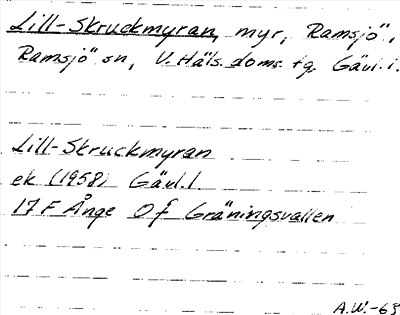 Lill-Skruckmyran, myr, Ramsjö,
Ramsjö sn, V. Häls. doms. tg. Gävl. l.
Lill-Skruckmyran
ek (1958) Gävl. l
17 F Ånge 0 f Gräningsvallen
A.W.-63